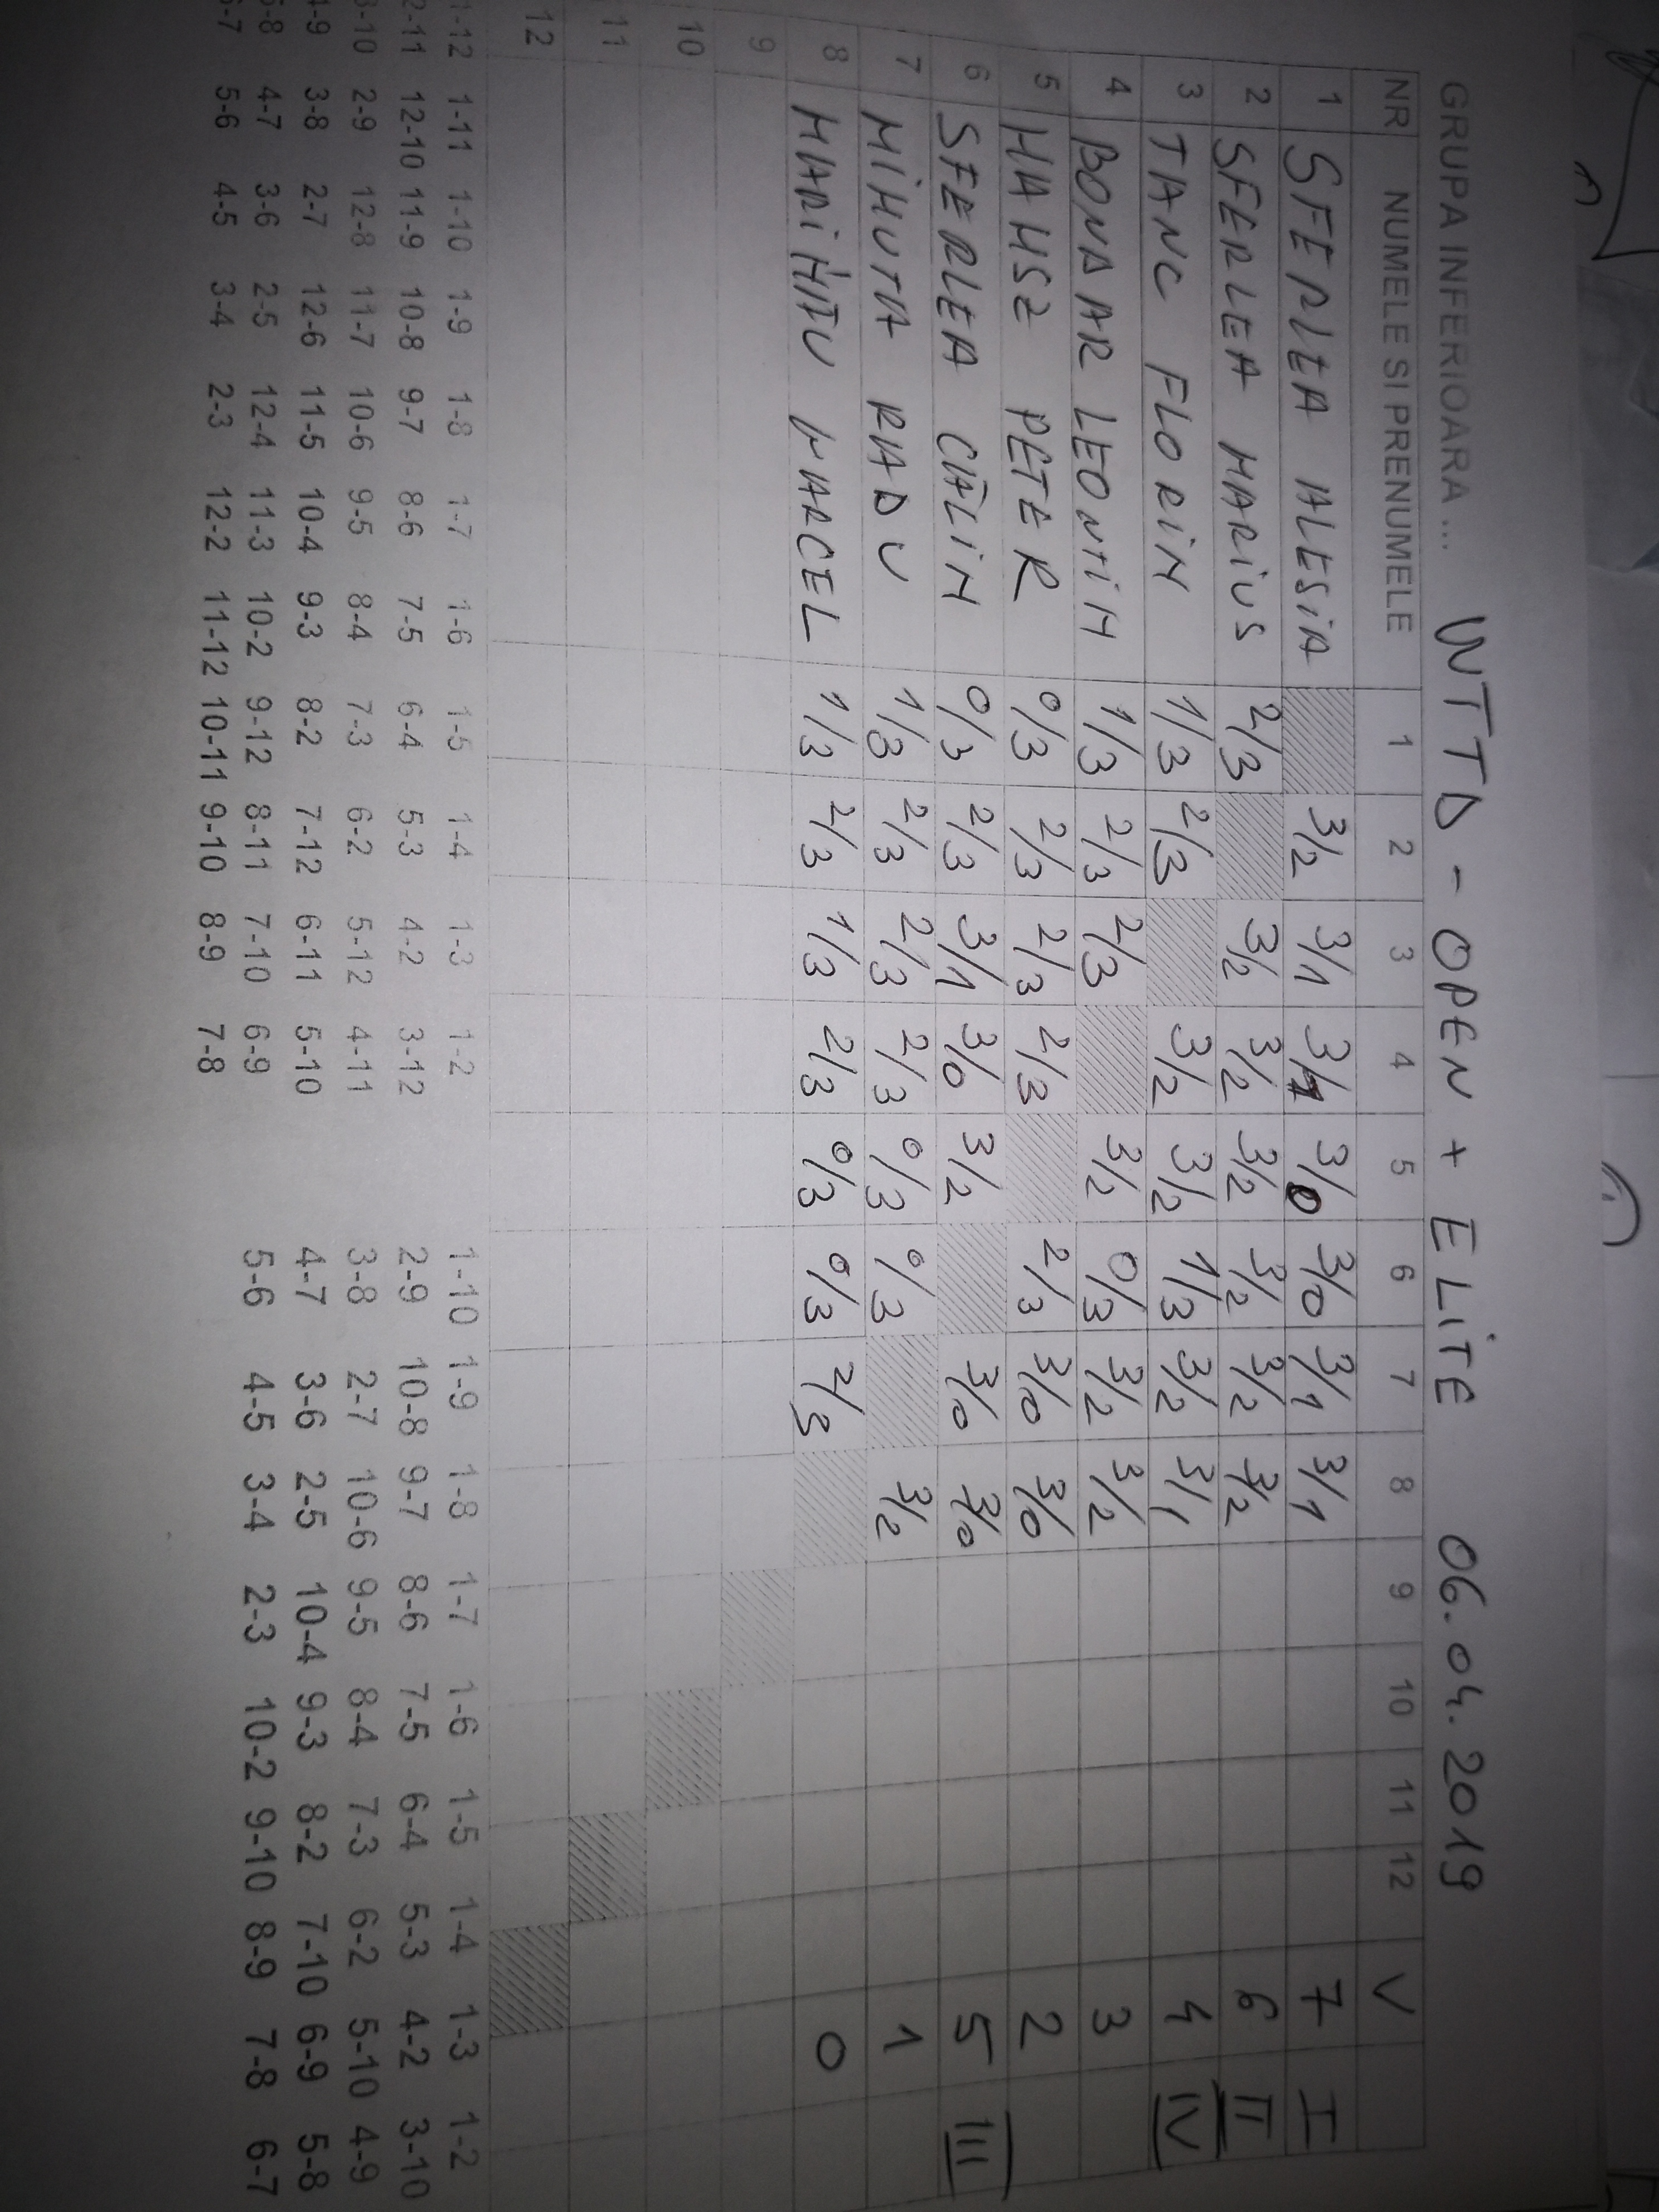 GRUPA INFERIOARA ... WTTD - OPEN + ELiTE 06.04.2019
NR NUMELE SI PRENUMELE 1 2 3 4 5 6 7 8 9 10 11 12 V
1 SFERLEA ALESiA 3/2 3/1 3/1 3/0 3/0 3/1 3/1 7 I
2 SFERLEA MARiUS 2/3 3/2 3/2 3/2 3/2 3/2 3/2 6 II
3 TANC FLORiN 1/3 2/3 3/2 3/2 1/3 3/2 3/1 4 IV
4 BONDAR LEONTiN 1/3 2/3 2/3 3/2 0/3 3/2 3/2 3
5 HAHSZ PETER 0/3 2/3 2/3 2/3 2/3 3/0 3/0 2
6 SFERLEA CĂLiN 0/3 2/3 3/1 3/0 3/2 3/0 3/0 5 III
7 MiHUTA RADU 1/3 2/3 2/3 2/3 0/3 0/3 3/2 1
8 MARiNĂU MARCEL 1/3 2/3 1/3 2/3 0/3 0/3 2/3 0
9
10
11
12
1-12 1-11 1-10 1-9 1-8 1-7 1-6 1-5 1-4 1-3 1-2 1-10 1-9 1-8 1-7 1-6 1-5 1-4 1-3 1-2
2-11 12-10 11-9 10-8 9-7 8-6 7-5 6-4 5-3 4-2 3-12 2-9 10-8 9-7 8-6 7-5 6-4 5-3 4-2 3-10
3-10 2-9 12-8 11-7 10-6 9-5 8-4 7-3 6-2 5-12 4-11 3-8 2-7 10-6 9-5 8-4 7-3 6-2 5-10 4-9
4-9 3-8 2-7 12-6 11-5 10-4 9-3 8-2 7-12 6-11 5-10 4-7 3-6 2-5 10-4 9-3 8-2 7-10 6-9 5-8
5-8 4-7 3-6 2-5 12-4 11-3 10-2 9-12 8-11 7-10 6-9 5-6 4-5 3-4 2-3 10-2 9-10 8-9 7-8 6-7
6-7 5-6 4-5 3-4 2-3 12-2 11-12 10-11 9-10 8-9 7-8